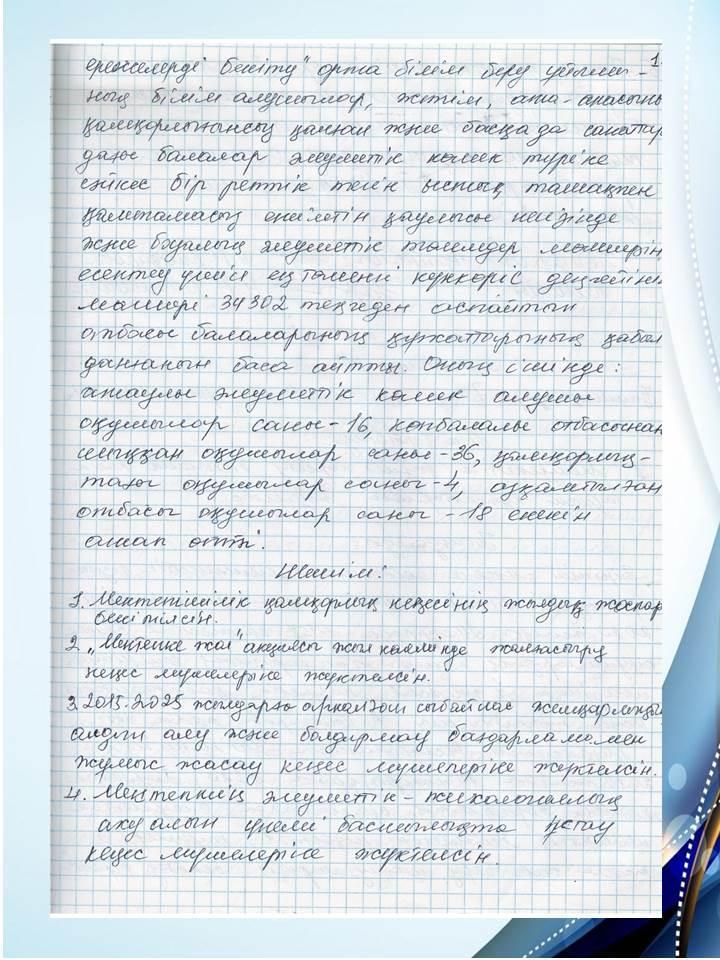 1.
ережелерді бекіту" орта білім беру ұйымы-
ның білім алушылар, жетім, ата-анасыны
қамқорлығынсыз қалған және басқа да санаттар
дағы балалар әлеуметтік көмек түріне
сәйкес бір реттік тегін ыстық тамақпен
қамтамасыз етілетін қаулысы негізінде
және бұралқы әлеуметтік төлемдер мөлшерін
есептеу үшін ең төменгі күнкөріс деңгейінің
мөлшері 34302 теңгеден аспайтын
отбасы балаларының құжаттарының қабыл
данғанын баса айтты. Оның ішінде:
атаулы әлеуметтік көмек алушы
оқушылар саны - 16, көпбалалы отбасынан
шыққан оқушылар саны - 36, қамқорлық-
тағы оқушылар саны - 4, аз қамтылған
отбасы оқушылар саны - 18 екенін
атап өтті.
Шешім:
1. Мектепішілік қамқорлық кеңесінің жылдық жоспар
бекітілсін.
2 „Мектепке жол" акциясы жыл көлемінде жалғастыру
кеңес мүшелеріне жүктелсін.
3 2015-2025 жылдарға арналған сыбайлас жемқорлықтың
алдын алу және болдырмау бағдарламамен
жұмыс жасау кеңес мүшелеріне жүктелсін.
4. Мектептің әлеуметтік-психологиялық
ахуалын үнемі басшылықта ұстау
кеңес мүшелеріне жүктелсін.